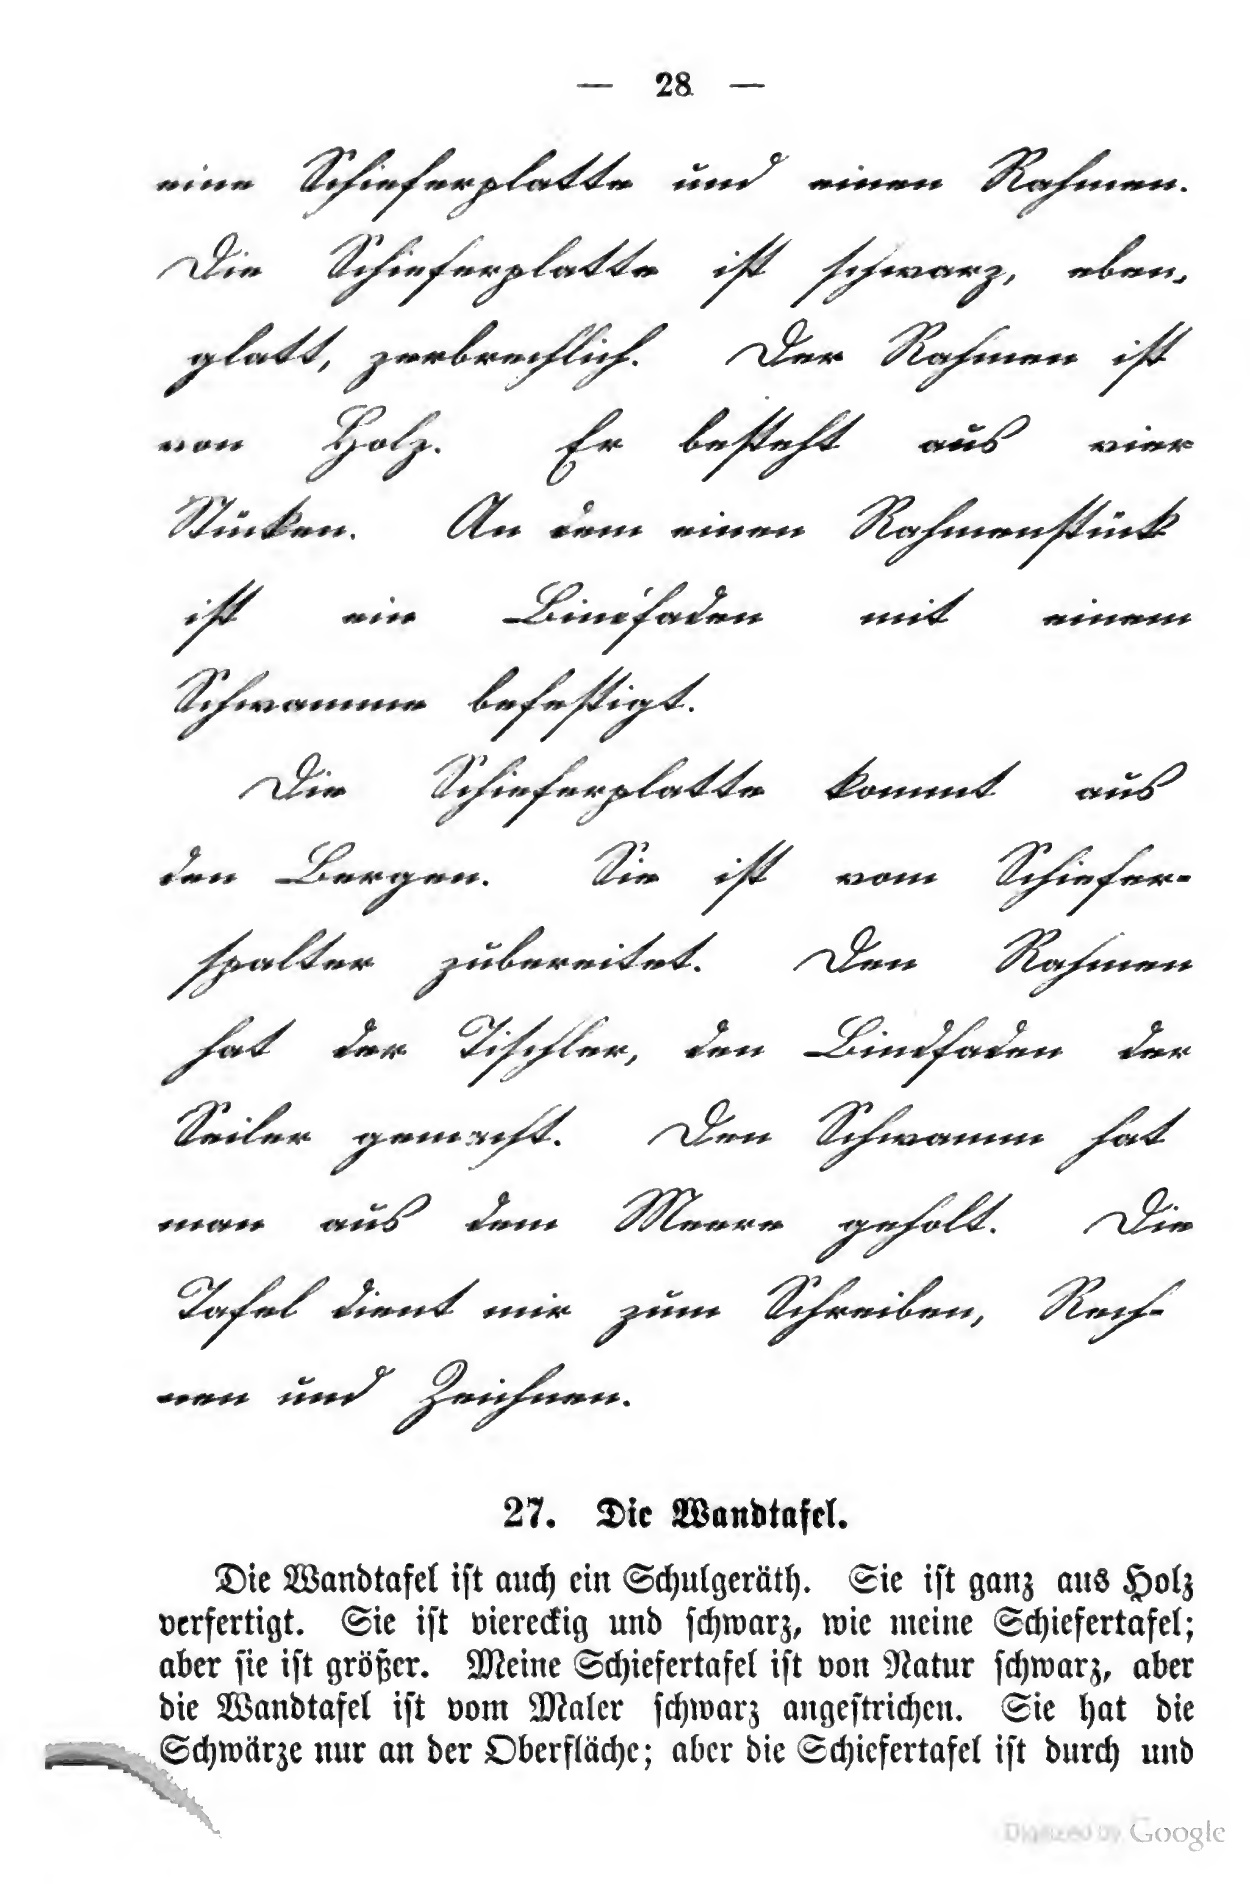 — 28 —
eine Schieferplatte und einen Rahmen.
Die Schieferplatte ist schwarz, eben,
glatt, zerbrechlich. Der Rahmen ist
von Holz. Er besteht aus vier
Stücken. An dem einen Rahmenstück
ist ein Bindfaden mit einem
Schwamme befestigt.
Die Schieferplatte kommt aus
den Bergen. Sie ist vom Schiefer-
spalter zubereitet. Den Rahmen
hat der Tischler, den Bindfaden der
Seiler gemacht. Den Schwamm hat
man aus dem Meere geholt. Die
Tafel dient mir zum Schreiben, Rech-
nen und Zeichnen.
27. Die Wandtafel.
Die Wandtafel iſt auch ein Schulgeräth. Sie iſt ganz aus Holz
verfertigt. Sie iſt viereckig und ſchwarz, wie meine Schiefertafel;
aber ſie iſt größer. Meine Schiefertafel iſt von Natur ſchwarz, aber
die Wandtafel iſt vom Maler ſchwarz angeſtrichen. Sie hat die
Schwärze nur an der Oberfläche; aber die Schiefertafel iſt durch und
Digitized by Google